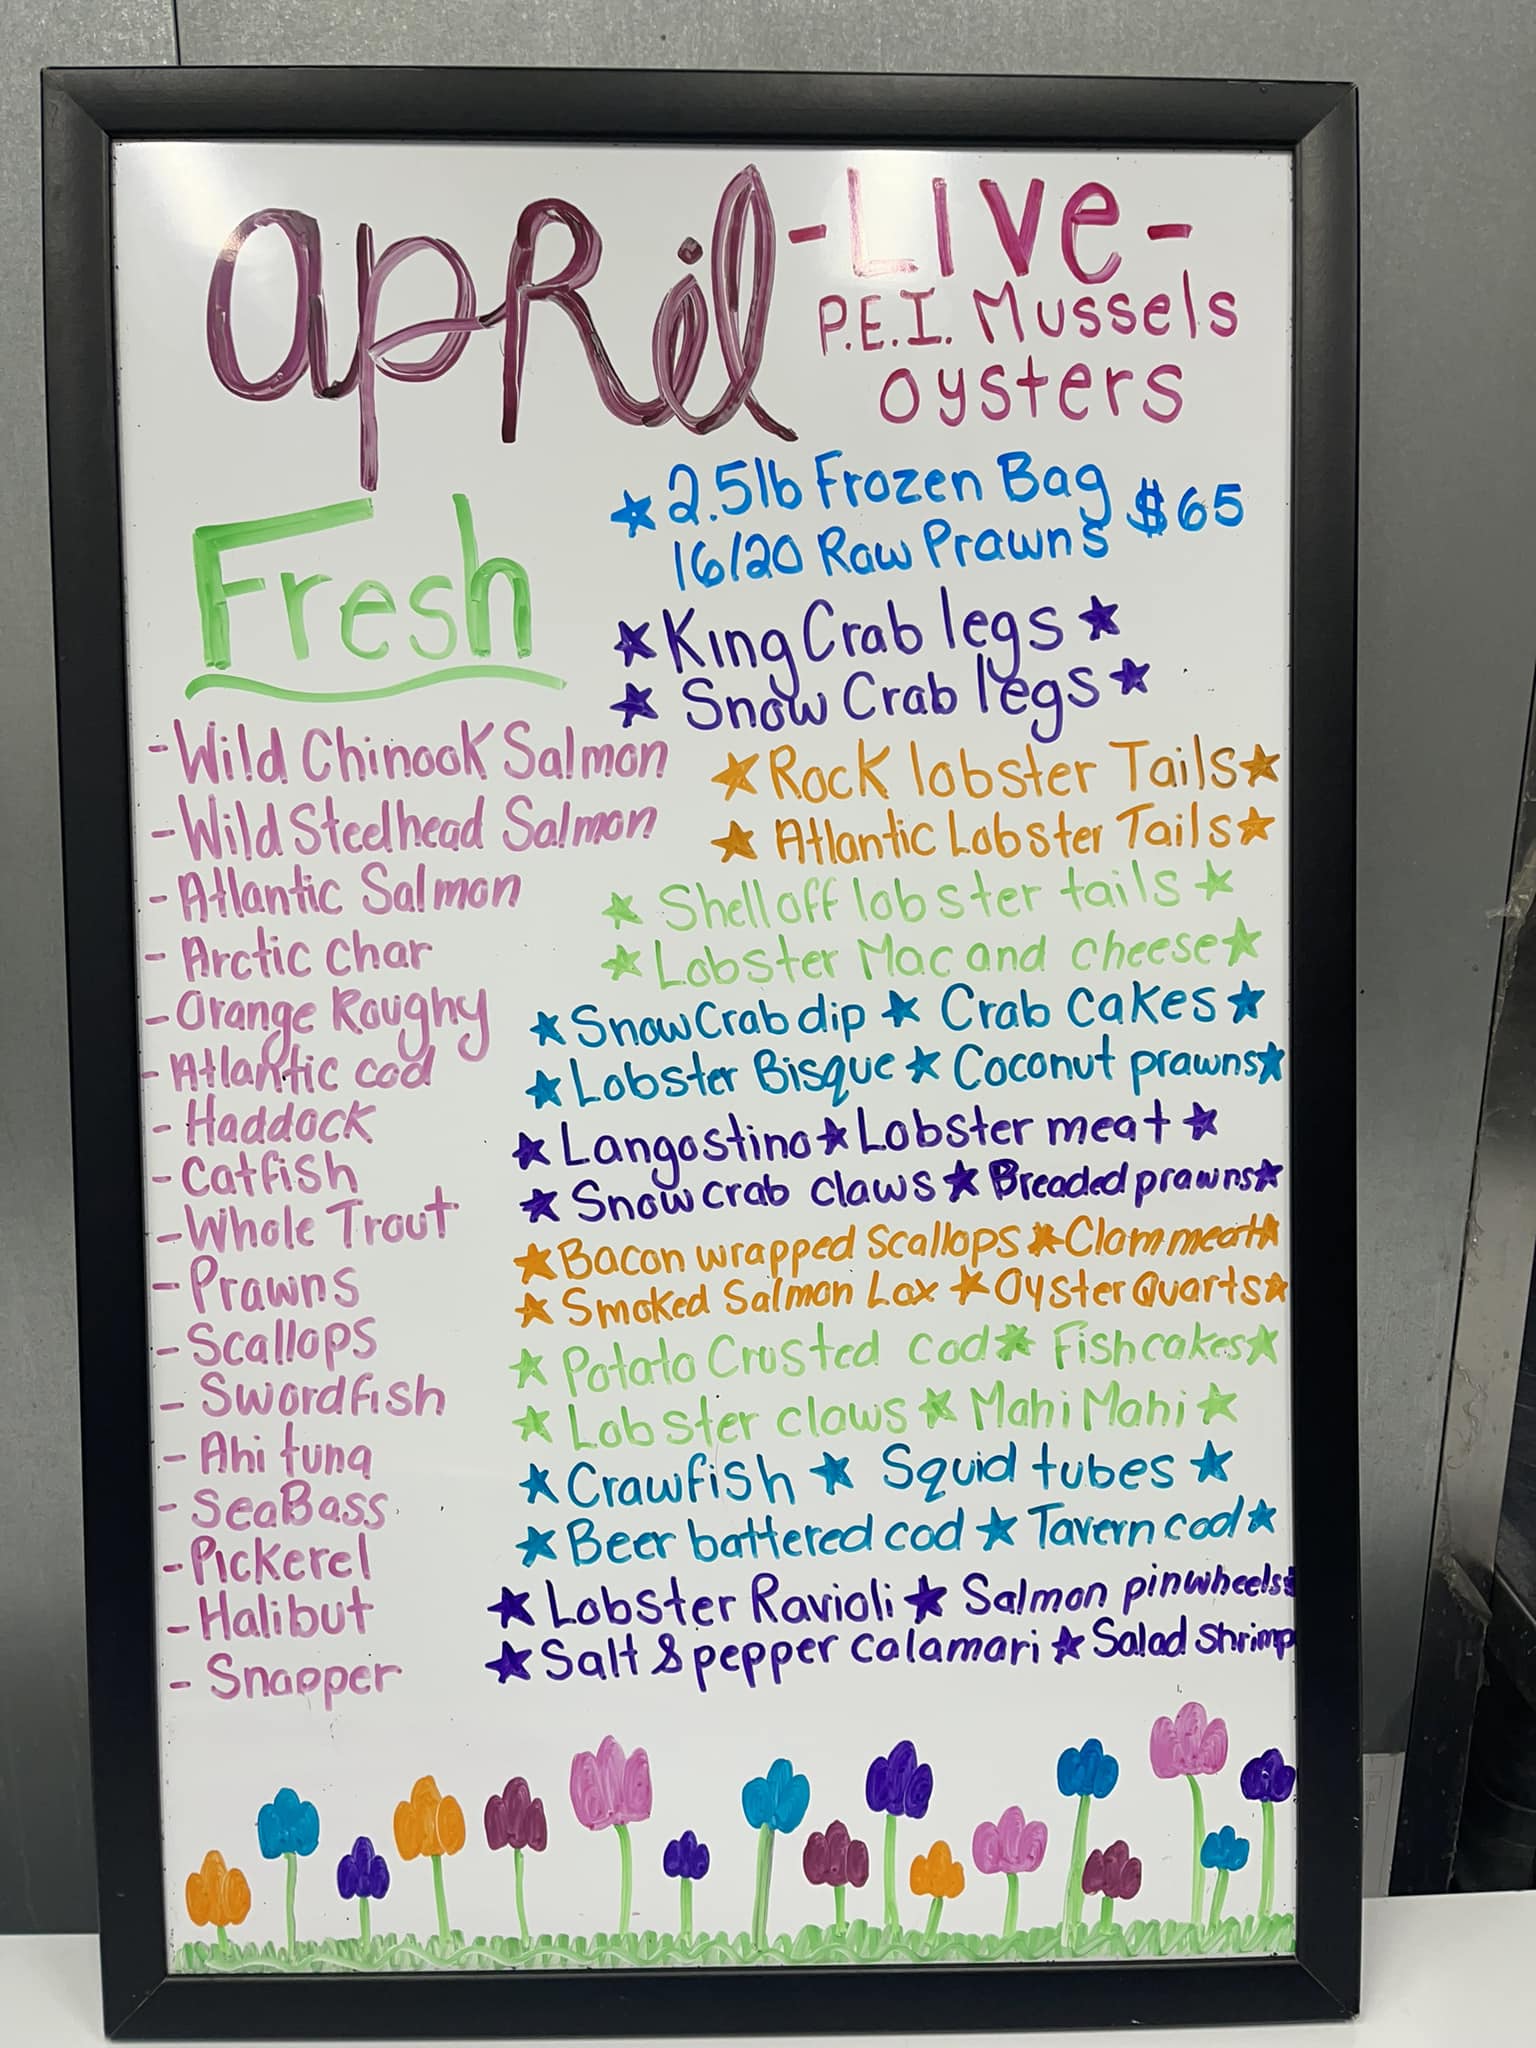 April
- Live -
P.E.I. Mussels
oysters
★ 2.5lb Frozen Bag $65
16/20 Raw Prawns
★ King Crab legs ★
★ Snow Crab legs ★
★ Rock lobster Tails ★
★ Atlantic Lobster Tails ★
★ Shell off lobster tails ★
★ Lobster Mac and cheese ★
★ Snow Crab dip ★ Crab cakes ★
★ Lobster Bisque ★ Coconut prawns ★
★ Langostino ★ Lobster meat ★
★ Snow crab claws ★ Breaded prawns ★
★ Bacon wrapped Scallops ★ Clam meat ★
★ Smoked Salmon Lox ★ Oyster Quarts ★
★ Potato Crusted cod ★ Fish cakes ★
★ Lobster claws ★ Mahi Mahi ★
★ Crawfish ★ Squid tubes ★
★ Beer battered cod ★ Tavern cod ★
★ Lobster Ravioli ★ Salmon pinwheels ★
★ Salt & pepper calamari ★ Salad shrimp
Fresh
- Wild Chinook Salmon
- Wild Steelhead Salmon
- Atlantic Salmon
- Arctic Char
- Orange Roughy
- Atlantic cod
- Haddock
- Catfish
- Whole Trout
- Prawns
- Scallops
- Swordfish
- Ahi tuna
- Sea Bass
- Pickerel
- Halibut
- Snapper